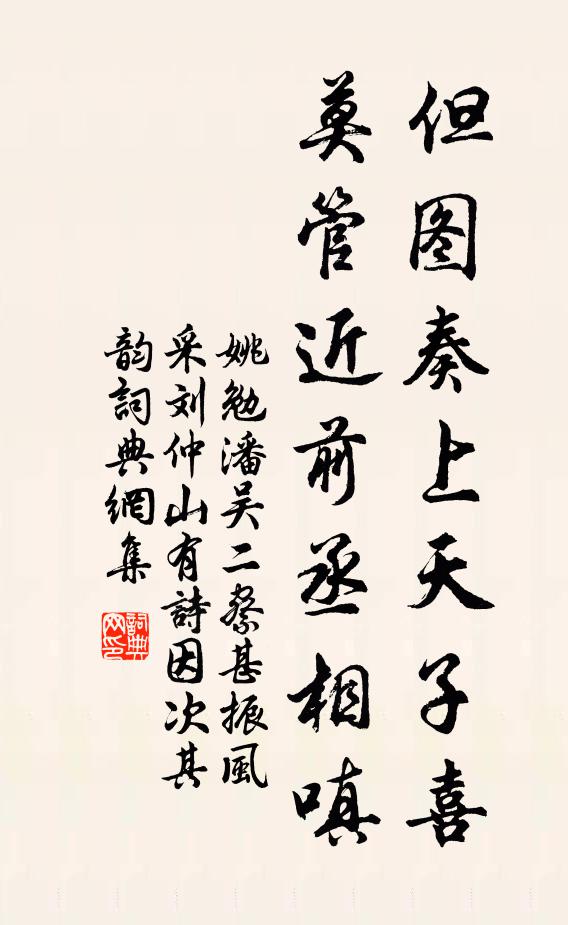 但图奏上天子喜
莫管近前丞相嗔
姚勉潘吴二察甚振風
采刘仲山有詩因次其
韵詞典網集
詞典
网印